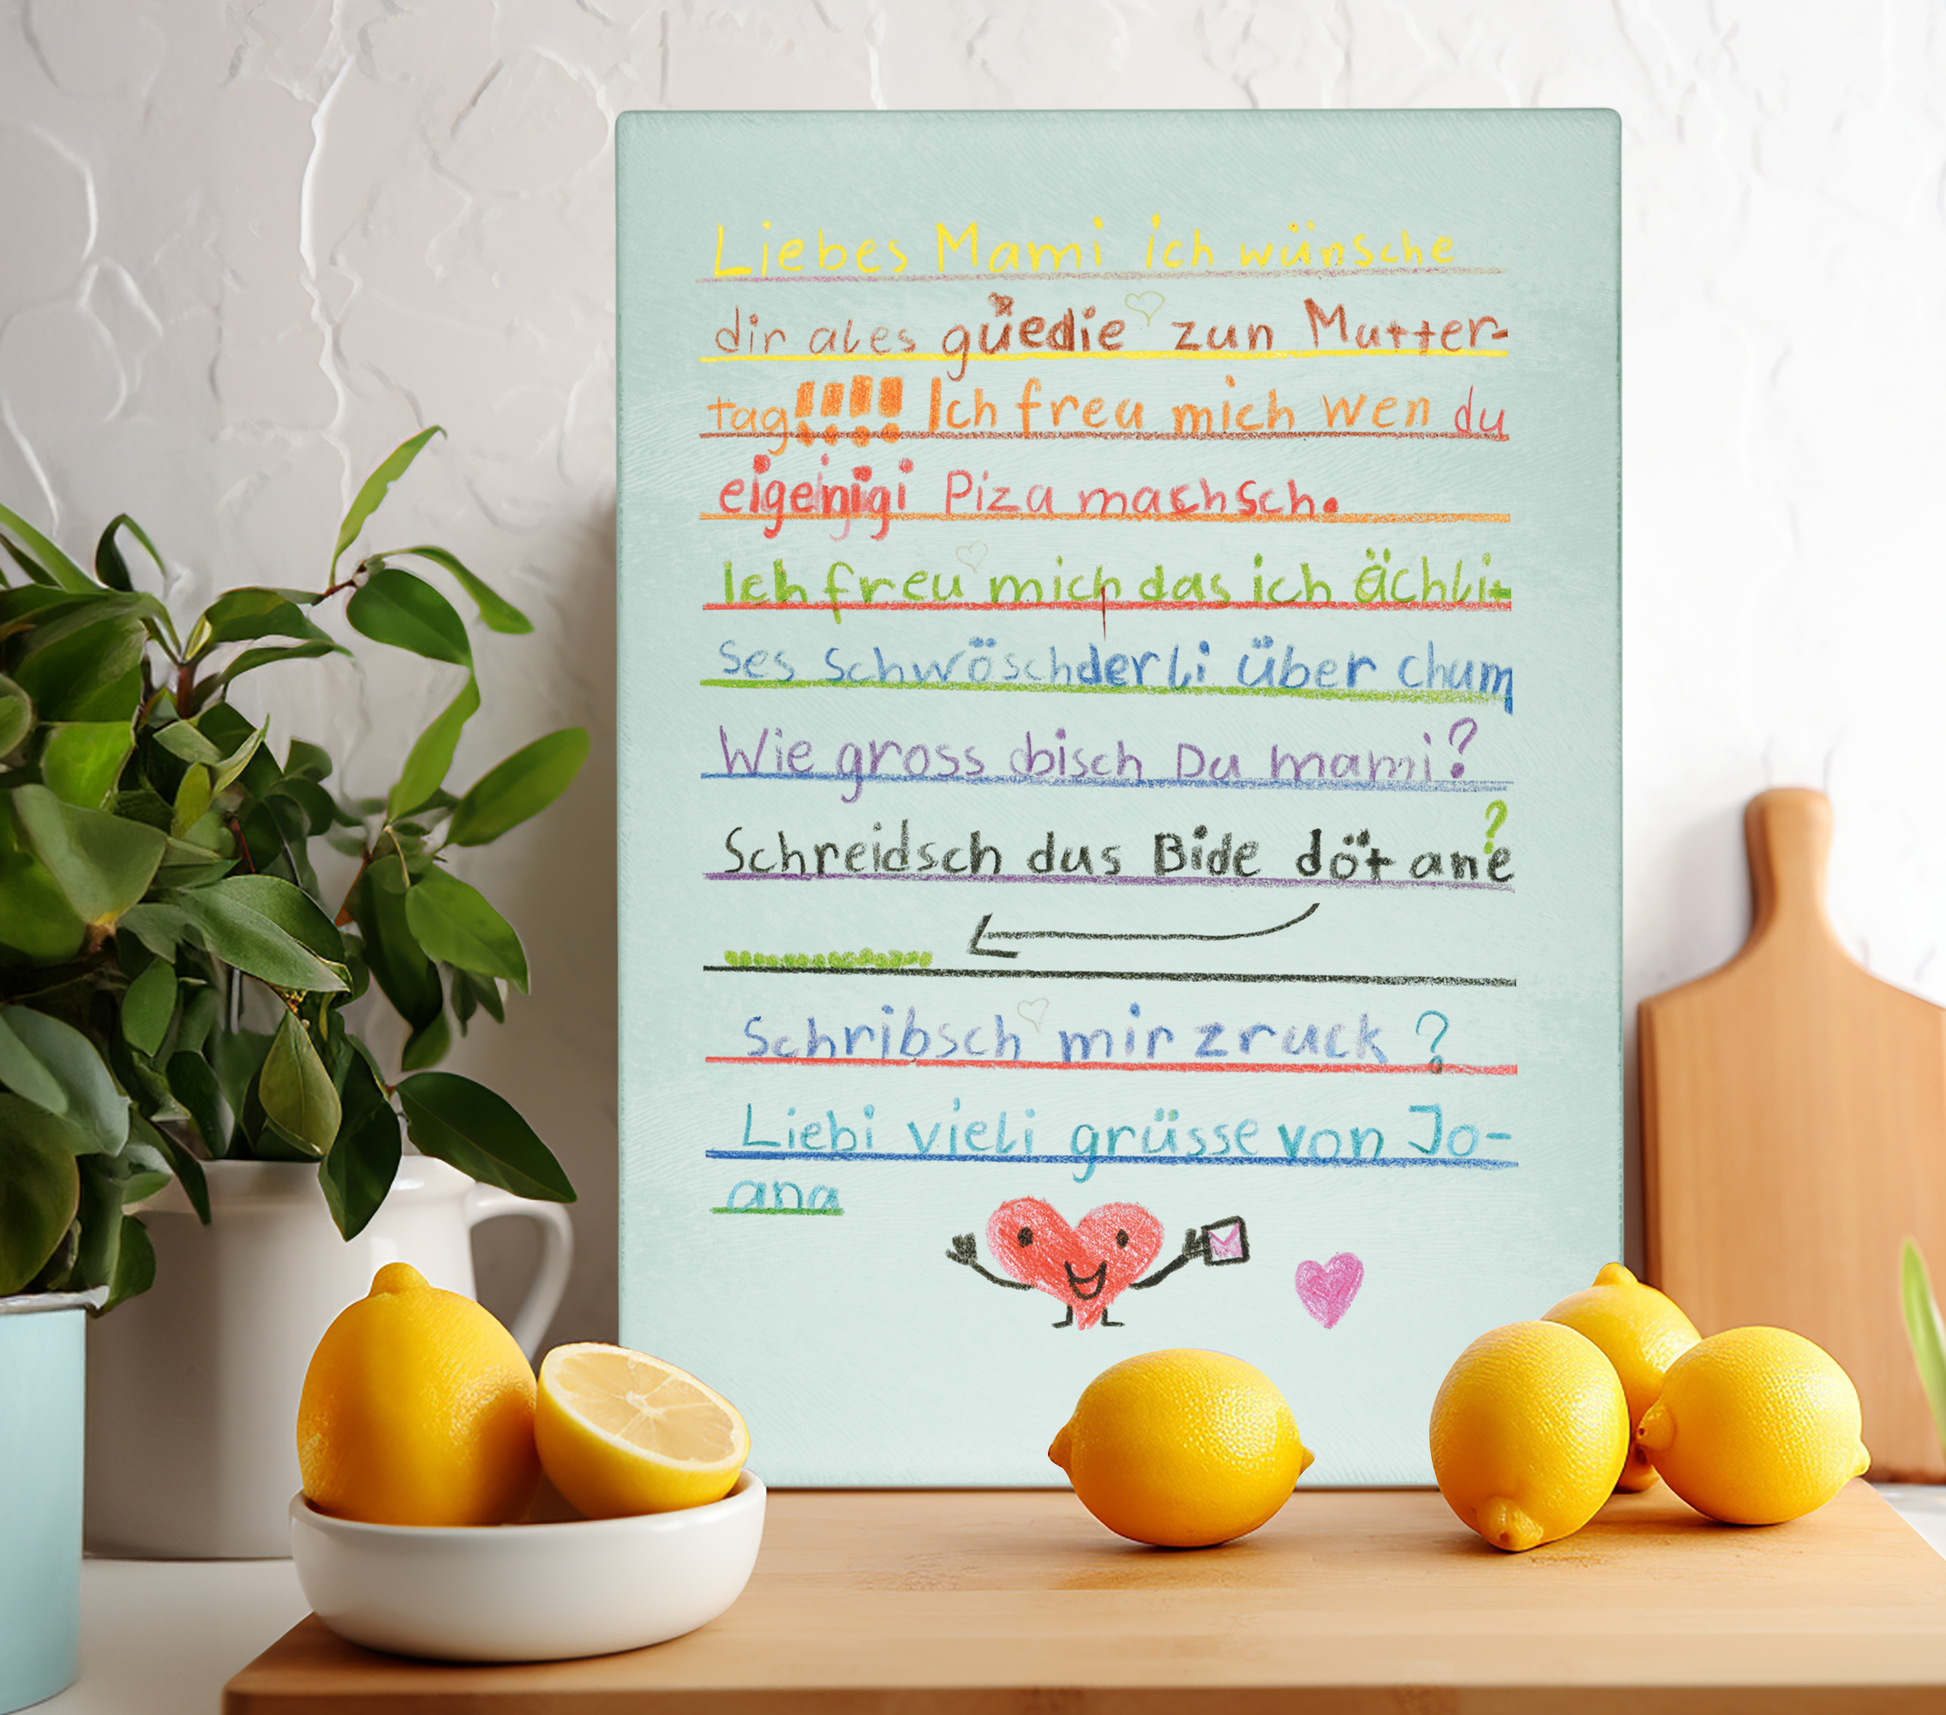 Liebes Mami ich wünsche
dir ales güedie zun Mutter-
tag!!!! Ich freu mich wen du
eigenigi Piza machsch.
Ich freu mich das ich ächlit
ses schwöschderli über chum
Wie gross bisch Du mami?
Schreidsch das Bide döt ane?
Schribsch mir zruck?
Liebi vieli grüsse von Jo-
ana